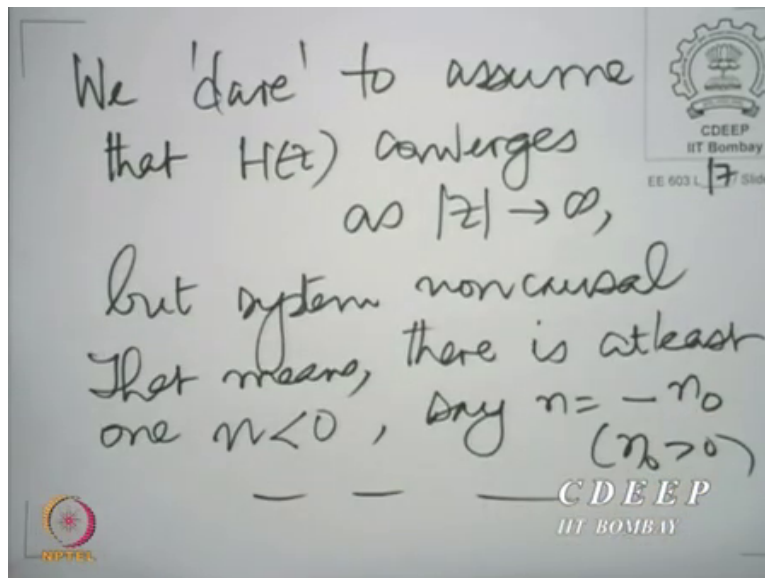 We 'dare' to assume
that H(z) converges
as |z| → ∞,
but system noncausal
That means, there is atleast
one n<0, say n = -n₀
(n₀ > 0)
CDEEP
IIT Bombay
EE 603 L 17 / Slide
NPTEL
CDEEP
IIT BOMBAY